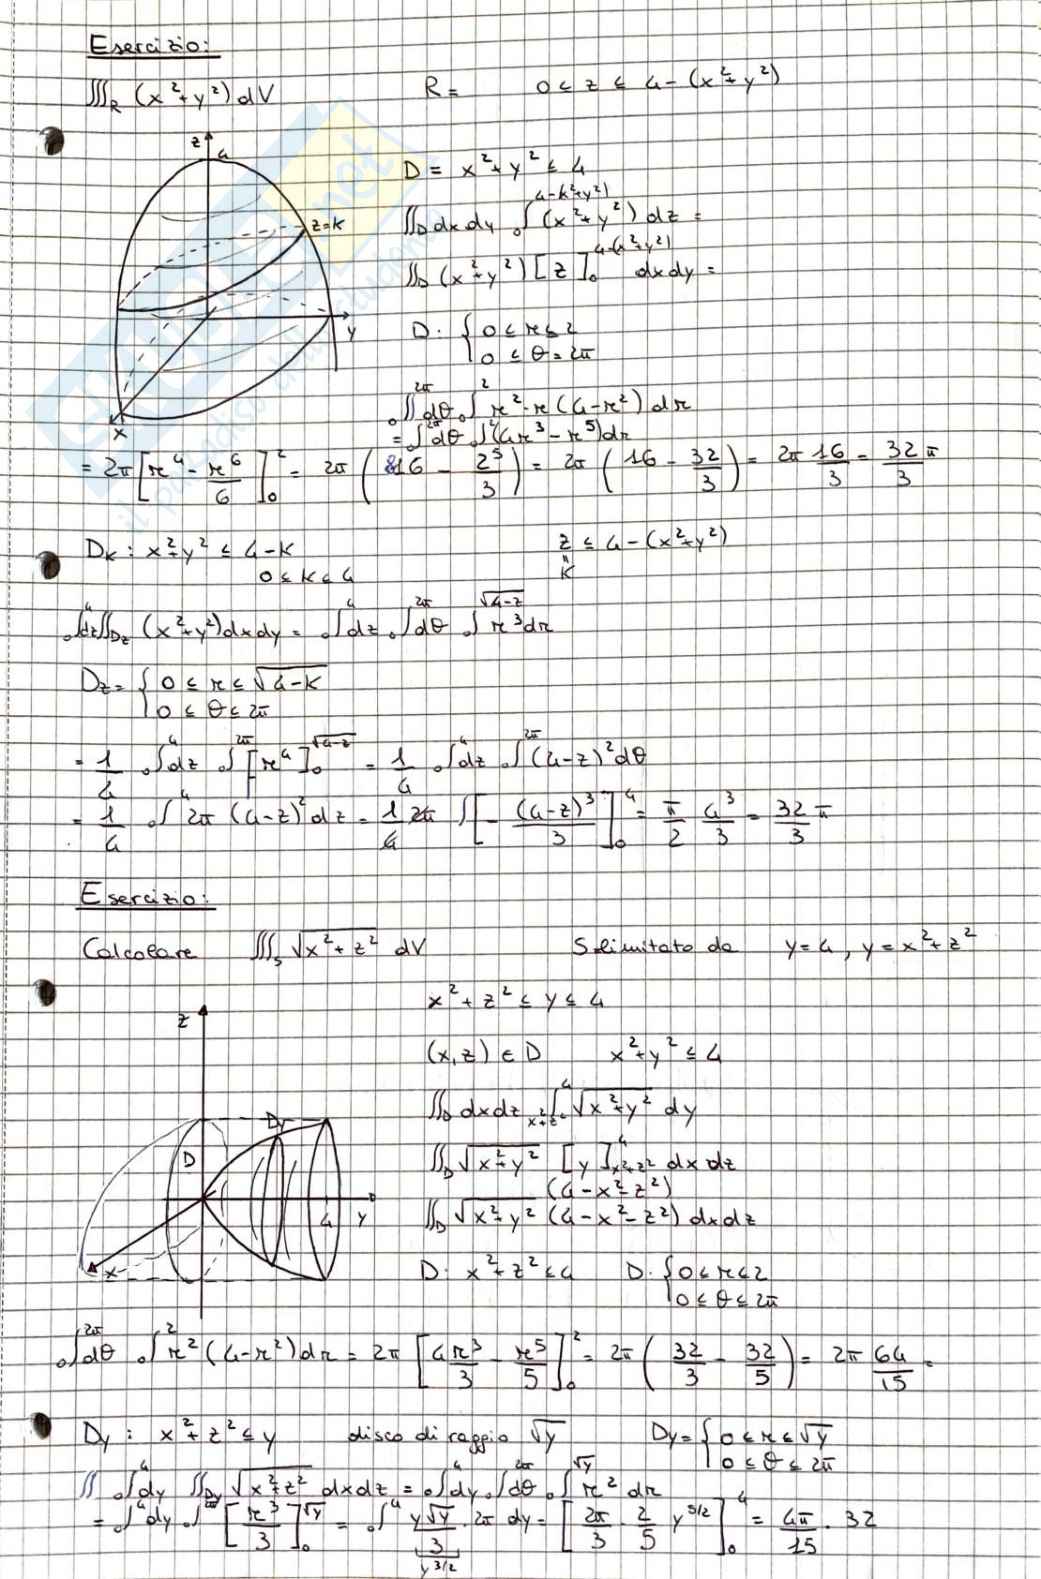 Esercizio:
∭_R (x²+y²) dV   R =   0 ≤ z ≤ 4-(x²+y²)
z 4
z=k
y
x
D = x²+y² ≤ 4
∬_D dxdy ₀∫^{4-(x²+y²)} (x²+y²) dz =
∬_D (x²+y²) [z]₀^{4-(x²+y²)} dxdy =
D: { 0 ≤ r ≤ 2
0 ≤ θ = 2π
₀∫^{2π} dθ ₀∫² r²·r (4-r²) dr
= ₀∫^{2π} dθ ₀∫² (4r³ - r⁵) dr
= 2π [r⁴ - r⁶/6]₀² = 2π (16 - 2⁵/3) = 2π (16 - 32/3) = 2π 16/3 = 32/3 π
D_k : x²+y² ≤ 4-k   z ≤ 4-(x²+y²)
0 ≤ k ≤ 4   " k
₀∫⁴ dz ∬_{Dz} (x²+y²) dxdy = ₀∫⁴ dz ₀∫^{2π} dθ ₀∫^{√4-z} r³ dr
Dz = { 0 ≤ r ≤ √4-k
0 ≤ θ ≤ 2π
= 1/4 ₀∫⁴ dz ₀∫^{2π} [r⁴]₀^{√4-z} = 1/4 ₀∫⁴ dz ₀∫^{2π} (4-z)² dθ
= 1/4 ₀∫⁴ 2π (4-z)² dz = 1/4 2π ∫ [-(4-z)³/3]₀⁴ = π/2 4³/3 = 32/3 π
Esercizio:
Calcolare ∭_S √x²+z² dV   S limitato da   y=4, y=x²+z²
x²+z² ≤ y ≤ 4
(x,z) ∈ D   x²+y² ≤ 4
∬_D dxdz _{x²+z²}∫⁴ √x²+y² dy
∬_D √x²+y² [y]_{x²+z²}⁴ dxdz
(4-x²-z²)
∬_D √x²+y² (4-x²-z²) dxdz
z
D
Dy
4
y
x
D: x²+z² ≤ 4   D: { 0 ≤ r ≤ 2
0 ≤ θ ≤ 2π
₀∫^{2π} dθ ₀∫² r² (4-r²) dr = 2π [4r³/3 - r⁵/5]₀² = 2π (32/3 - 32/5) = 2π 64/15 =
Dy : x²+z² ≤ y   disco di raggio √y   Dy = { 0 ≤ r ≤ √y
0 ≤ θ ≤ 2π
∬ ₀∫⁴ dy ∬_{Dy} √x²+z² dxdz = ₀∫⁴ dy ₀∫^{2π} dθ ₀∫^{√y} r² dr
= ₀∫⁴ dy ₀∫^{2π} [r³/3]₀^{√y} = ₀∫⁴ y√y/3 · 2π dy = [2π/3 · 2/5 y^{5/2}]₀⁴ = 4π/15 · 32
y^{3/2}